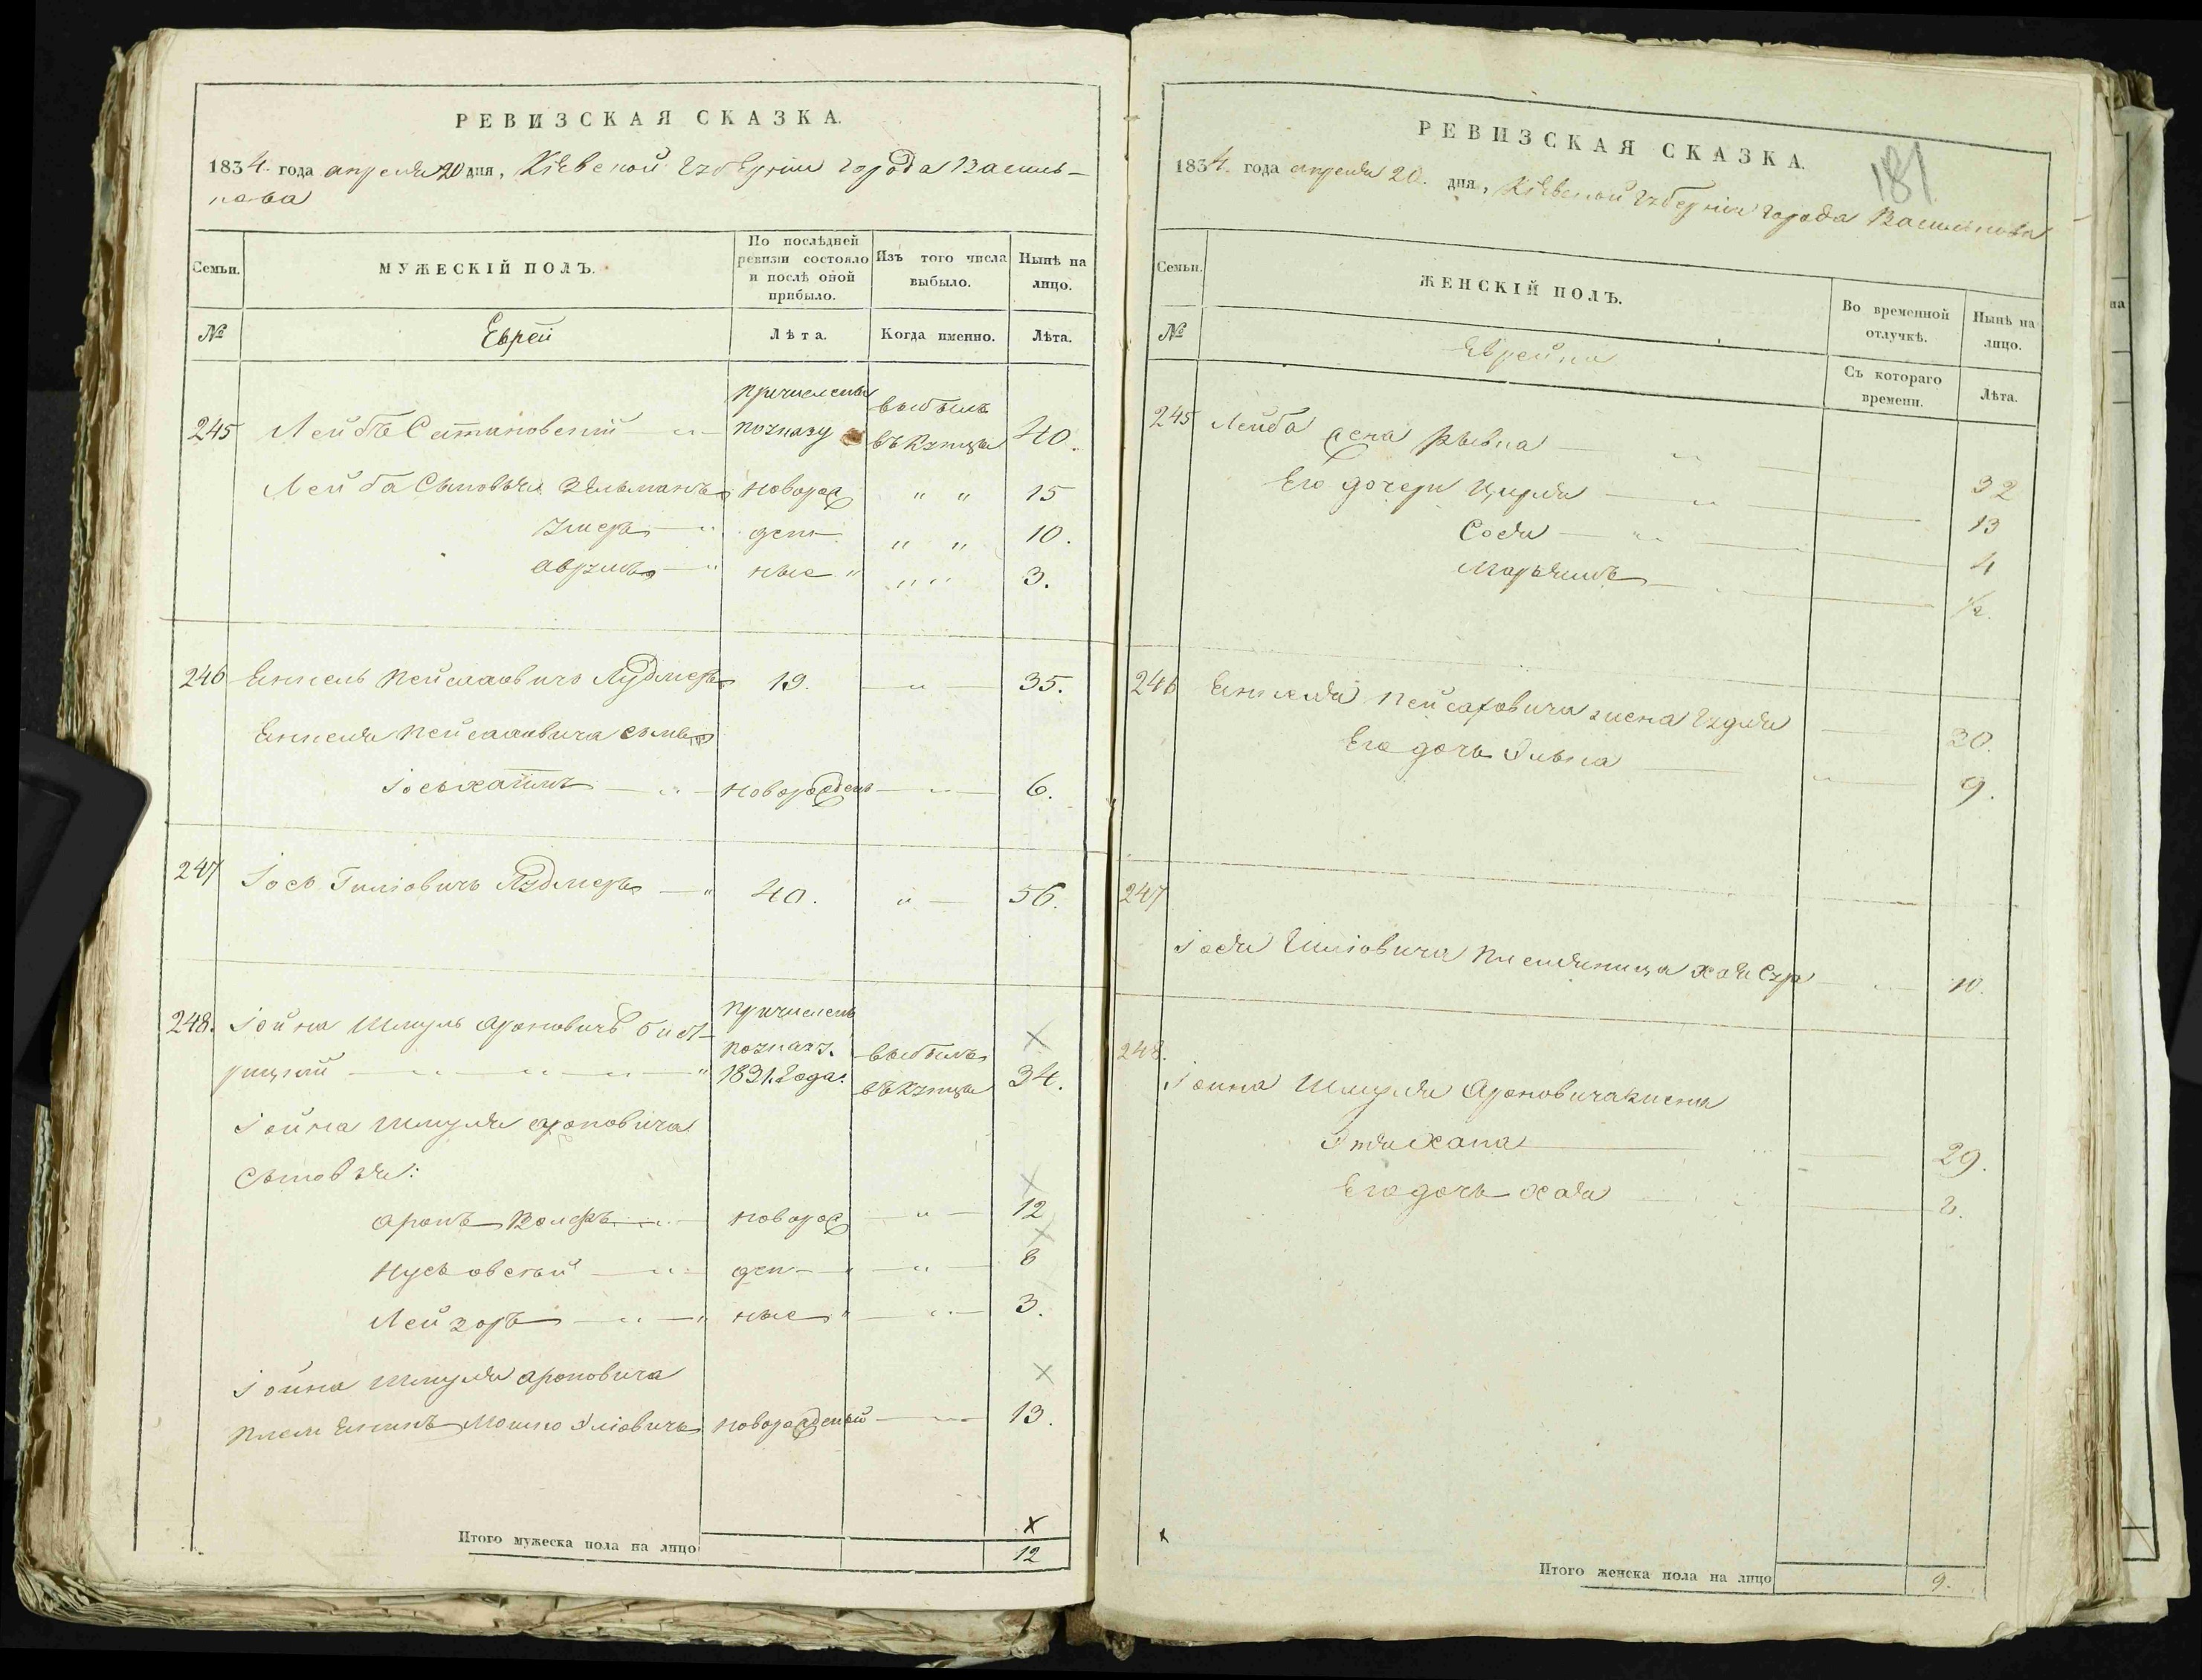 РЕВИЗСКАЯ СКАЗКА.
1834. года апреля 20 дня, Кіевской губерніи города Василь-
кова
Семьи.
МУЖЕСКІЙ ПОЛЪ.
По послѣдней ревизіи состояло и послѣ оной прибыло.
Изъ того числа выбыло.
Нынѣ на лицо.
№
Еврей
Лѣта.
Когда именно.
Лѣта.
причисленъ выбылъ
245 Лейбъ Сатановскій поуказу въ Купцы 40.
Лейба Сыновья Зельманъ новорож 15
ден 10.
Аврумъ ные 3.
246 Енкель Пейсаховичъ Лудмеръ 19. 35.
Енкеля Пейсаховича сынъ
Іось новорожден 6.
247 Іось Гиліовичъ Лудмеръ 40. 56.
причисленъ
248. Іойна Шмуль Ароновичъ бист- поуказу. выбылъ X
рицкій 1831. Года. въ Купцы 34.
Іойна Шмуля Ароновича
Сыновья: X
Аронъ Волфъ новорож 12
X
ден 8
Лейзоръ ные 3.
Іойна Шмуля Ароновича X
племенникъ Мошко Эліовичъ новорожденый 13.
X
Итого мужеска пола на лицо 12
РЕВИЗСКАЯ СКАЗКА.
181
1834. года апреля 20. дня, Кіевской губерніи города Василькова
Семьи.
ЖЕНСКІЙ ПОЛЪ.
Во временной отлучкѣ.
Нынѣ на лицо.
№
Еврейка
Съ котораго времени.
Лѣта.
245 Лейба жена Рывка 32
Его дочери Цирля 13
Сося 4
Марьямъ 1/2.
246 Енкеля Пейсаховича жена 30.
Его дочь Элька 9.
247
Іося Гиліовича племяница Хая Сура 10.
248.
Іойна Шмуля Ароновича жена
Этя Хана 29.
Его дочь Хая 2.
Итого женска пола на лицо 9.
на